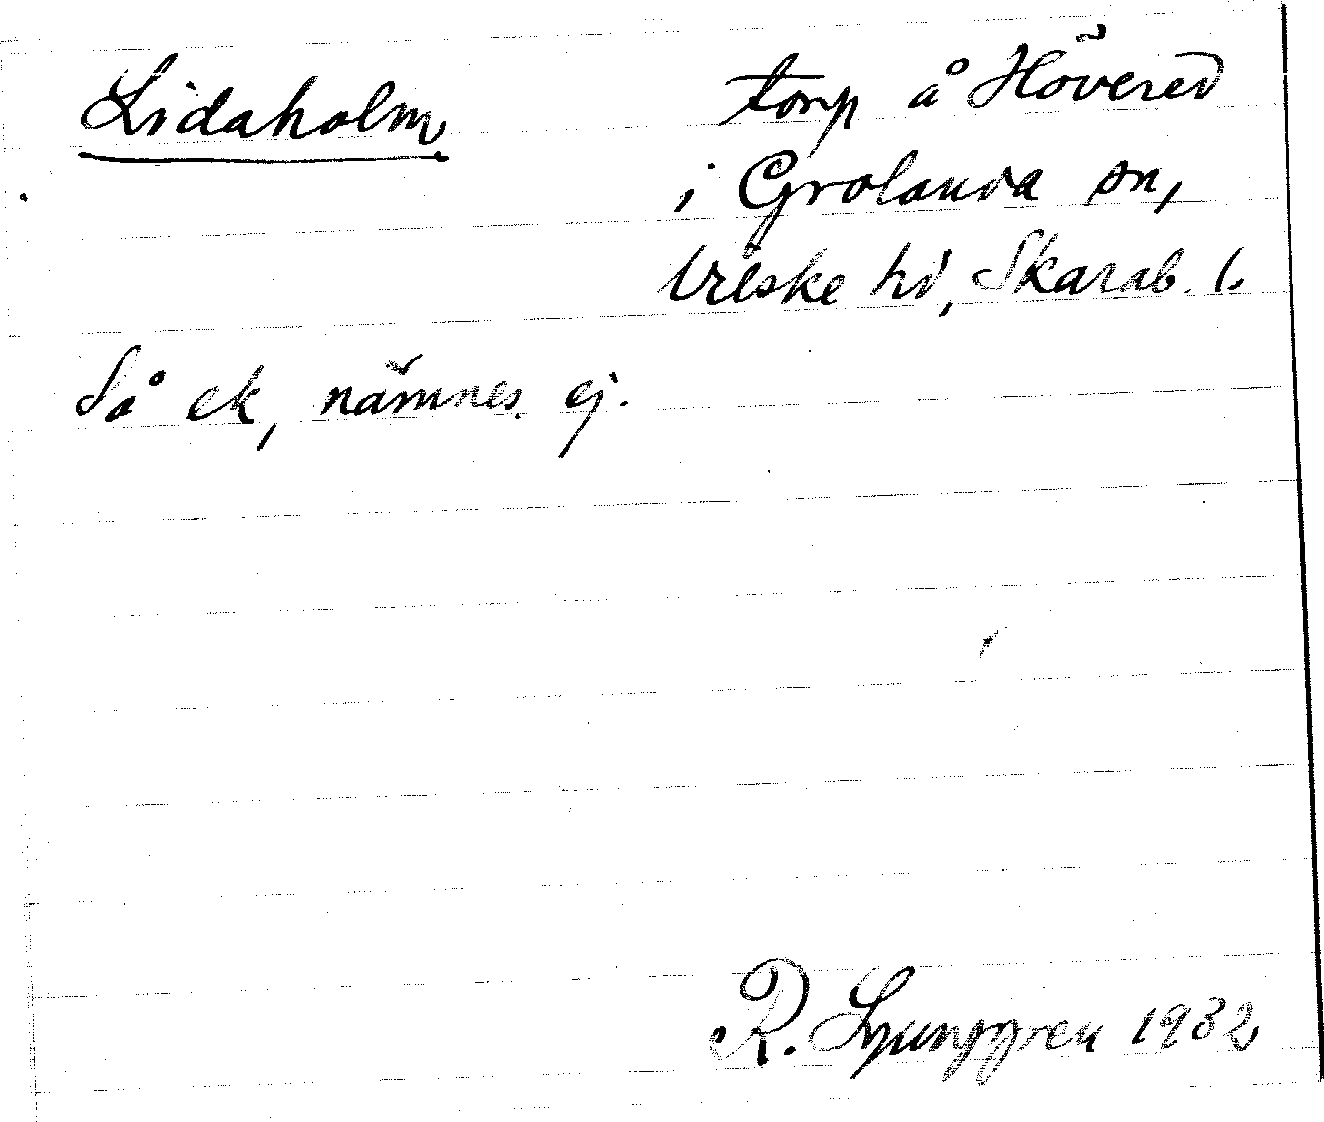 Lidaholm
torp å Hövered
i Grolanda sn,
Vilske hd, Skarab. l.
Så ek, nämnes ej.
R. Ljunggren 1932